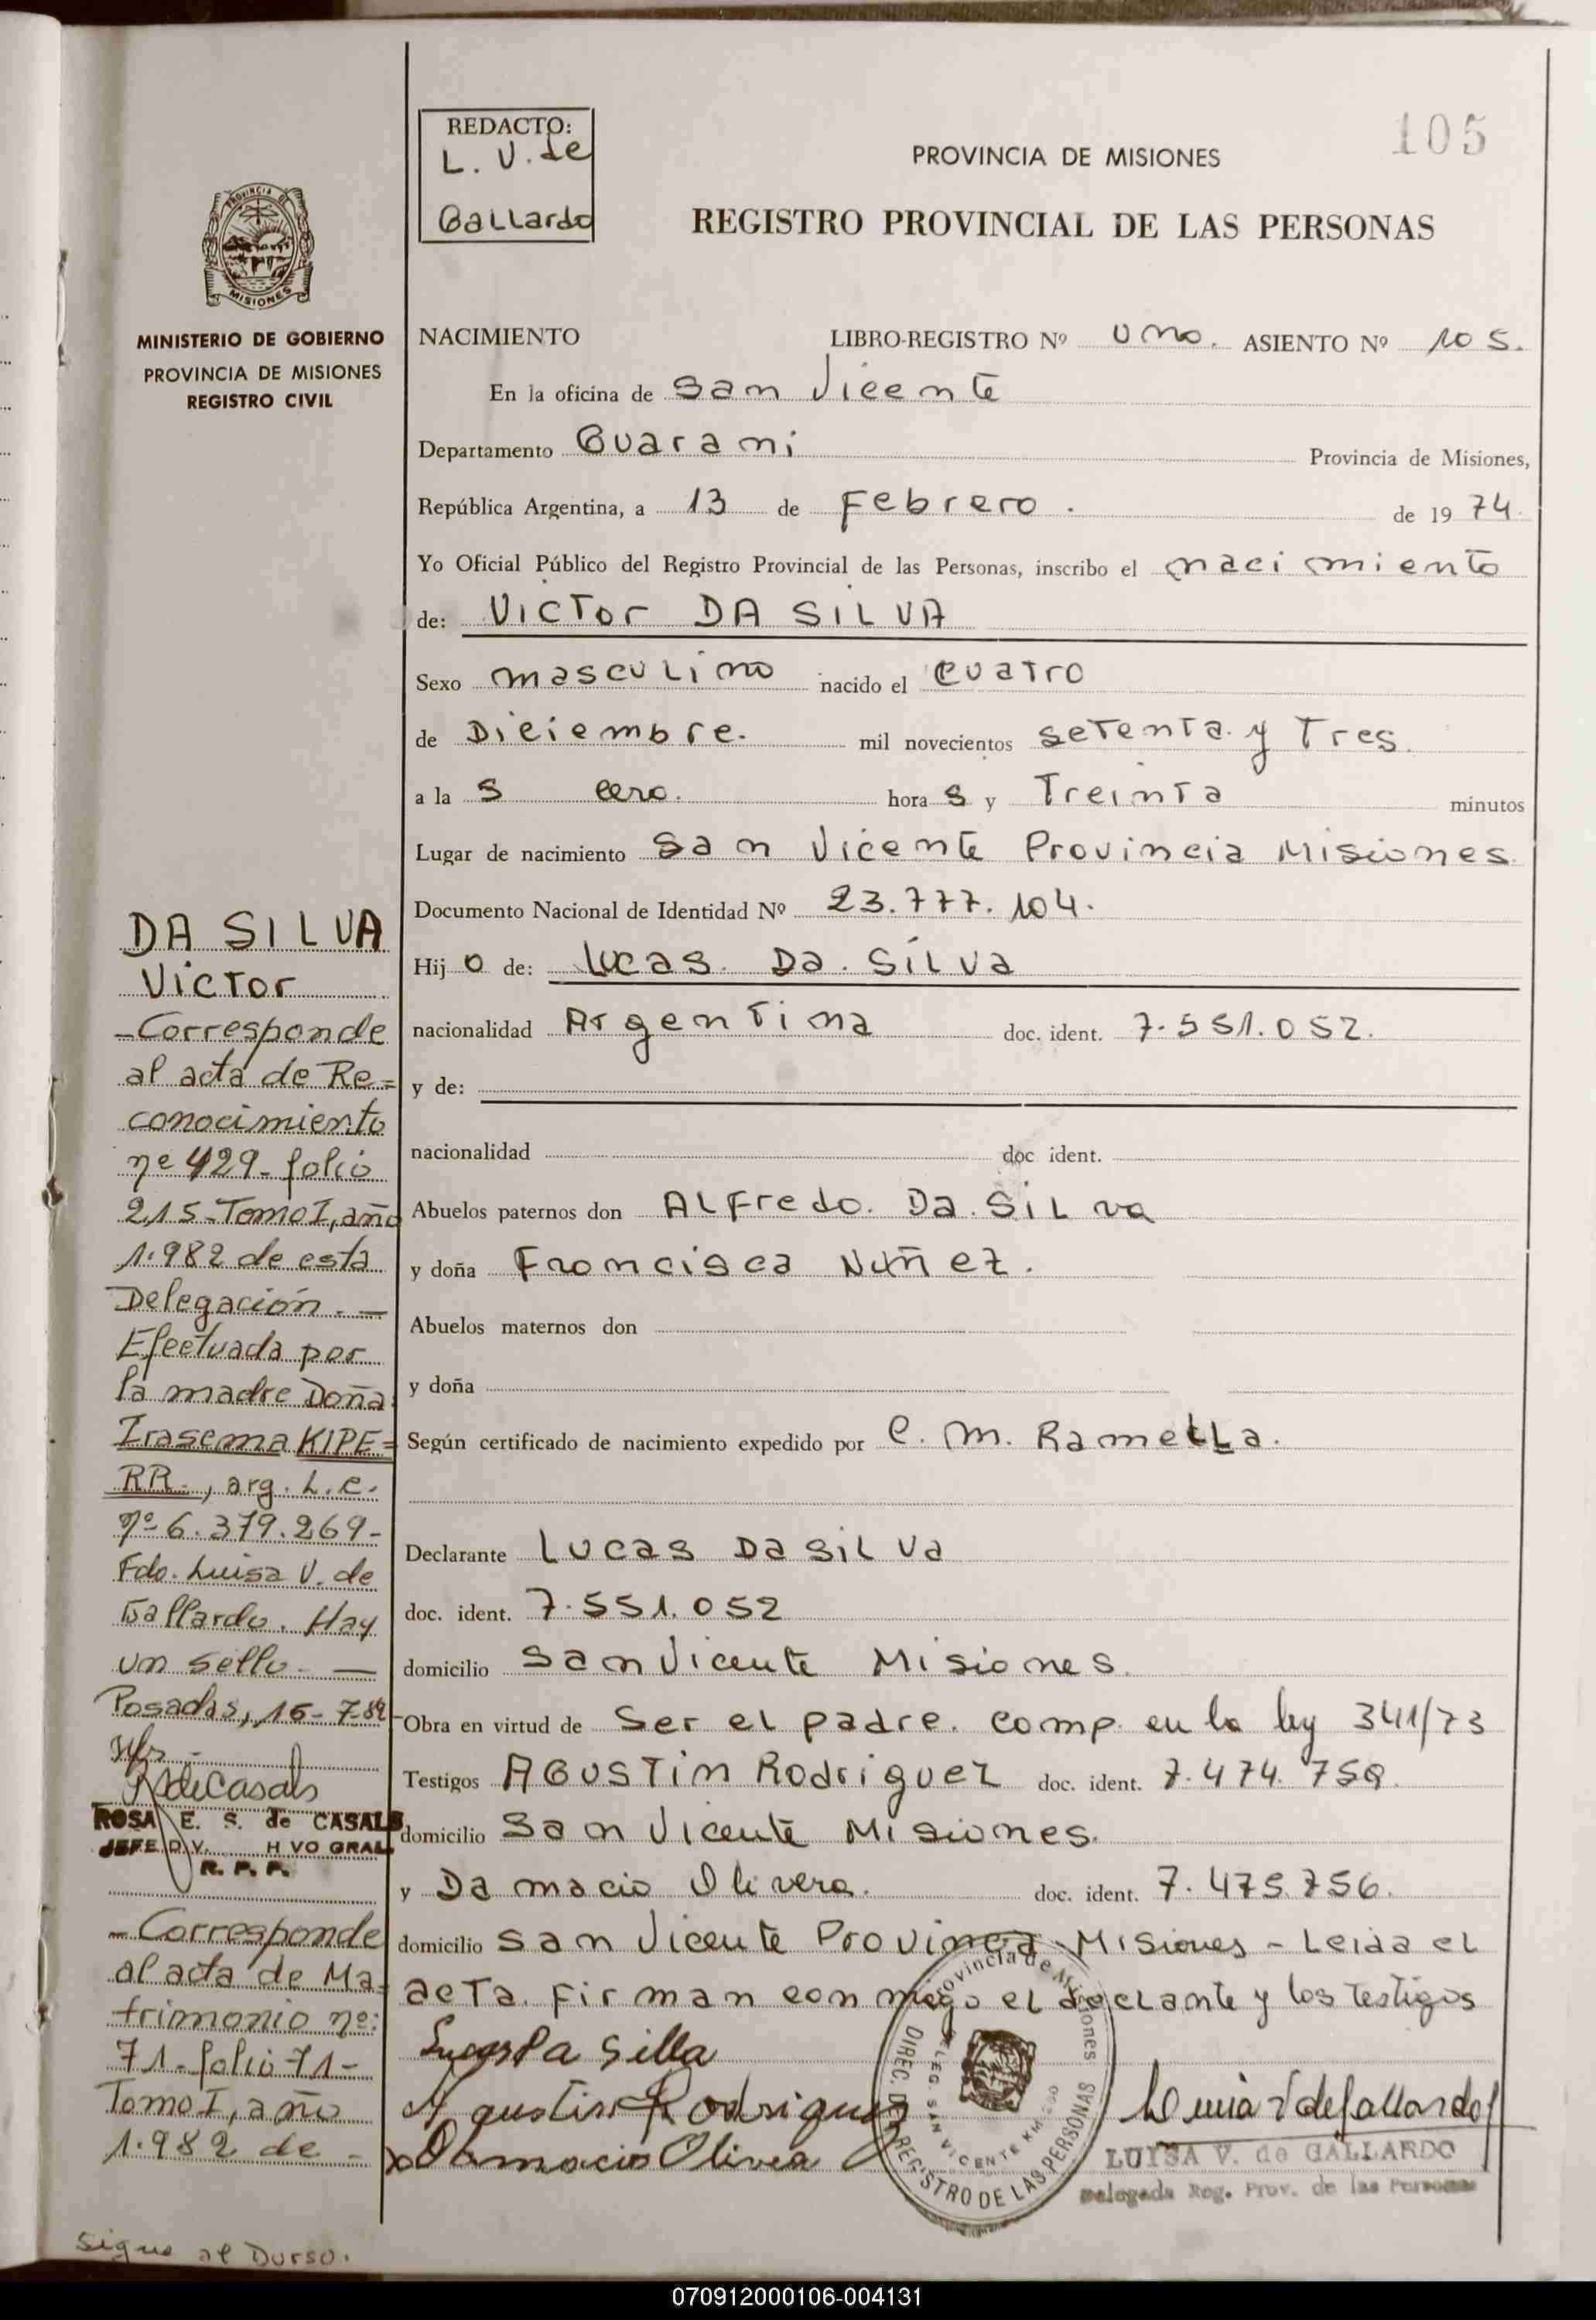 105
REDACTO:
L. V. de
Gallardo
PROVINCIA DE MISIONES
REGISTRO PROVINCIAL DE LAS PERSONAS
PROVINCIA DE
MISIONES
MINISTERIO DE GOBIERNO
PROVINCIA DE MISIONES
REGISTRO CIVIL
NACIMIENTO LIBRO-REGISTRO Nº uno. ASIENTO Nº 105.
En la oficina de San Vicente
Departamento Guarani Provincia de Misiones,
República Argentina, a 13 de Febrero. de 1974
Yo Oficial Público del Registro Provincial de las Personas, inscribo el nacimiento
de: VICTOR DA SILVA
Sexo masculino nacido el cuatro
de Diciembre. mil novecientos setenta y Tres.
a la s cero. hora s y Treinta minutos
Lugar de nacimiento San Vicente Provincia Misiones.
Documento Nacional de Identidad Nº 23.777.104.
Hij o de: Lucas. Da. Silva
nacionalidad Argentina doc. ident. 7.551.052.
y de:
nacionalidad doc ident.
Abuelos paternos don Alfredo. Da. Silva
y doña Francisca Nuñez.
Abuelos maternos don
y doña
Según certificado de nacimiento expedido por C. M. Ramella.
Declarante Lucas Da Silva
doc. ident. 7.551.052
domicilio San Vicente Misiones.
Obra en virtud de Ser el padre. comp. en la ley 341/73
Testigos Agustin Rodriguez doc. ident. 7.474.759.
domicilio San Vicente Misiones.
y Damacio Olivera. doc. ident. 7.475.756.
domicilio San Vicente Provincia Misiones - Leida el
acta. Firman conmigo el declante y los testigos
Lucas Da Silla
Agustin Rodriguez
x Damacio Olivera
Provincia de Misiones
DIREC. DE REGISTRO DE LAS PERSONAS
DELEG. SAN VICENTE KM.
Luisa V de Gallardo
LUISA V. de GALLARDO
Delegada Reg. Prov. de las Personas
DA SILVA
Victor
-Corresponde
al acta de Re=
conocimiento
nº 429- folio
215-Tomo I, año
1.982 de esta
Delegación.-
Efectuada por
la madre Doña
Irasema KIPE=
RR-, arg. L.C.
nº 6.379.269-
Fdo. Luisa V. de
Gallardo. Hay
un sello.-
Posadas, 16-7-82
RdeCasals
ROSA E. S. de CASALS
JEFE DIV. H VO GRAL.
R. P. P.
-Corresponde
al acta de Ma=
trimonio nº:
71-folio 71-
Tomo I, año
1.982 de -
Sigue al Dorso.
070912000106-004131